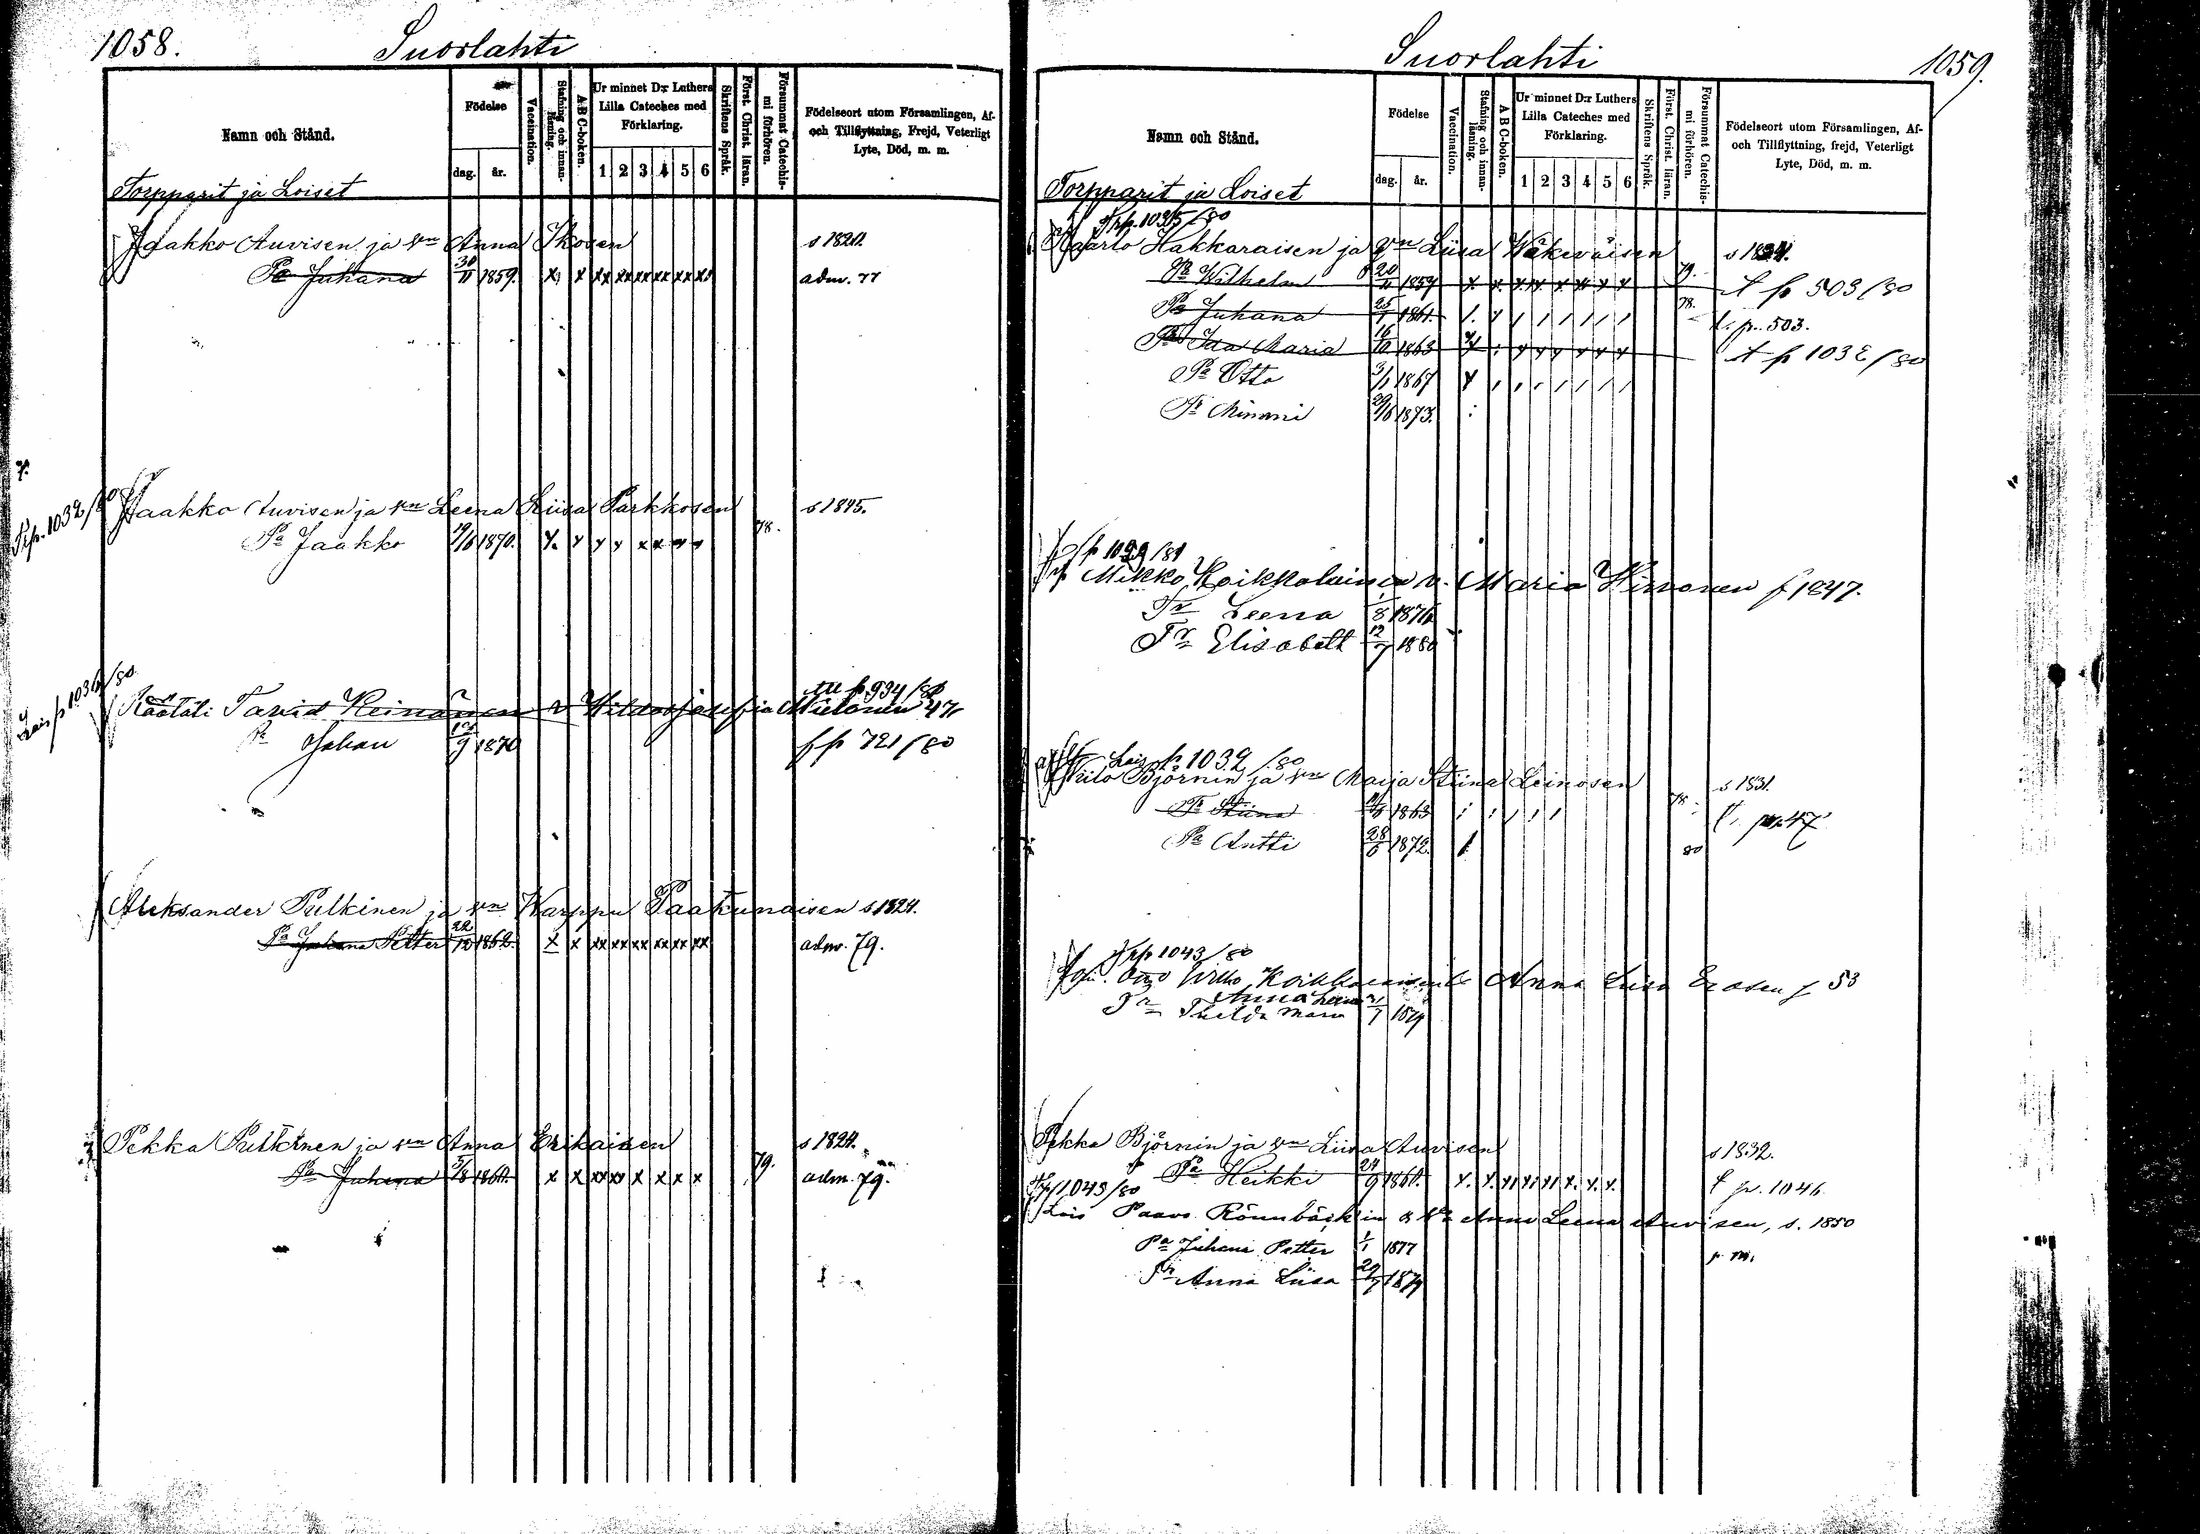 1058.
Suorlahti
Namn och Stånd.
Födelse
dag.
år.
Vaccination.
Stafning och innanläsning.
A B C-boken.
Ur minnet D:r Luthers Lilla Cateches med Förklaring.
1 2 3 4 5 6
Skriftens Språk.
Först. Christ. läran.
Försummat Catechismi förhören.
Födelseort utom Församlingen, Af- och Tillflyttning, Frejd, Veterligt Lyte, Död, m. m.
Torpparit ja Loiset
Jaakko Auvisen ja vn Anna Ikosen s 1820.
Pa Juhana 30/11 1859. x x xx xx xx xx xx adm. 77
Trp. 1032/
Jaakko Auvisen ja vn Leena Liisa Parkkosen s 1845.
Pa Jaakko 19/6 1870. x. x x x x x x x 78.
Lois p 1032/80
Räätäli Tavid Keinänen v Josefia Mielonen 47
tll p 934/80
Pa Johan 9 1870 p 721/80
Aleksander Pulkinen ja vn Warppu Paakunaisen s 1824.
Pa Juhana Petter 22/12 1862. x x xx xx xx xx xx xx adm. 79.
Pekka Pulkinen ja vn Anna Erikaisen s 1824.
Pa Juhana 5/8 1860. x x xx xx x x x x 79. adm. 79.
1059.
Suorlahti
Namn och Stånd.
Födelse
dag.
år.
Vaccination.
Stafning och innanläsning.
A B C-boken.
Ur minnet D:r Luthers Lilla Cateches med Förklaring.
1 2 3 4 5 6
Skriftens Språk.
Först. Christ. läran.
Försummat Catechismi förhören.
Födelseort utom Församlingen, Af- och Tillflyttning, frejd, Veterligt Lyte, Död, m. m.
Torpparit ja Loiset
Kaarlo Hakkaraisen ja vn Liisa Wäkeväisen
Pa Wilhelm 20/11 1859 79. t p 503/80
Pa Juhana 25/1 1861. 78. t. p. 503.
Tr Ida Maria 16/10 1863 t p 1032/80
Pa Otto 3/1 1867
Tr Minni 29/6 1873.
Mikko Koikkalainen v. Maria Hirvonen f 1847.
Tr Leena 8 1876
Tr Elisabett 12/7 1880
Lois p 1032/80
Niilo Björnin ja vn Maija Stiina Leinosen s 1831.
Tr Stiina 1863 78.
Pa Antti 28/8 1872. 80
p 1043/80
Otto Wilho Koikkalainen Anna Liisa Erosen f 53
Anna Leena
Tr Maria 1 1879
Pekka Björnin ja vn Liisa Auvisen s 1832.
Pa Heikki 24/9 1860. t p. 1046.
p 1043/80
Lois Paavo Rönnbäckin & vn Anna Leena Auvisen, s. 1850
Pa Juhana Petter 1/1 1877
Tr Anna Liisa 29/7 1879